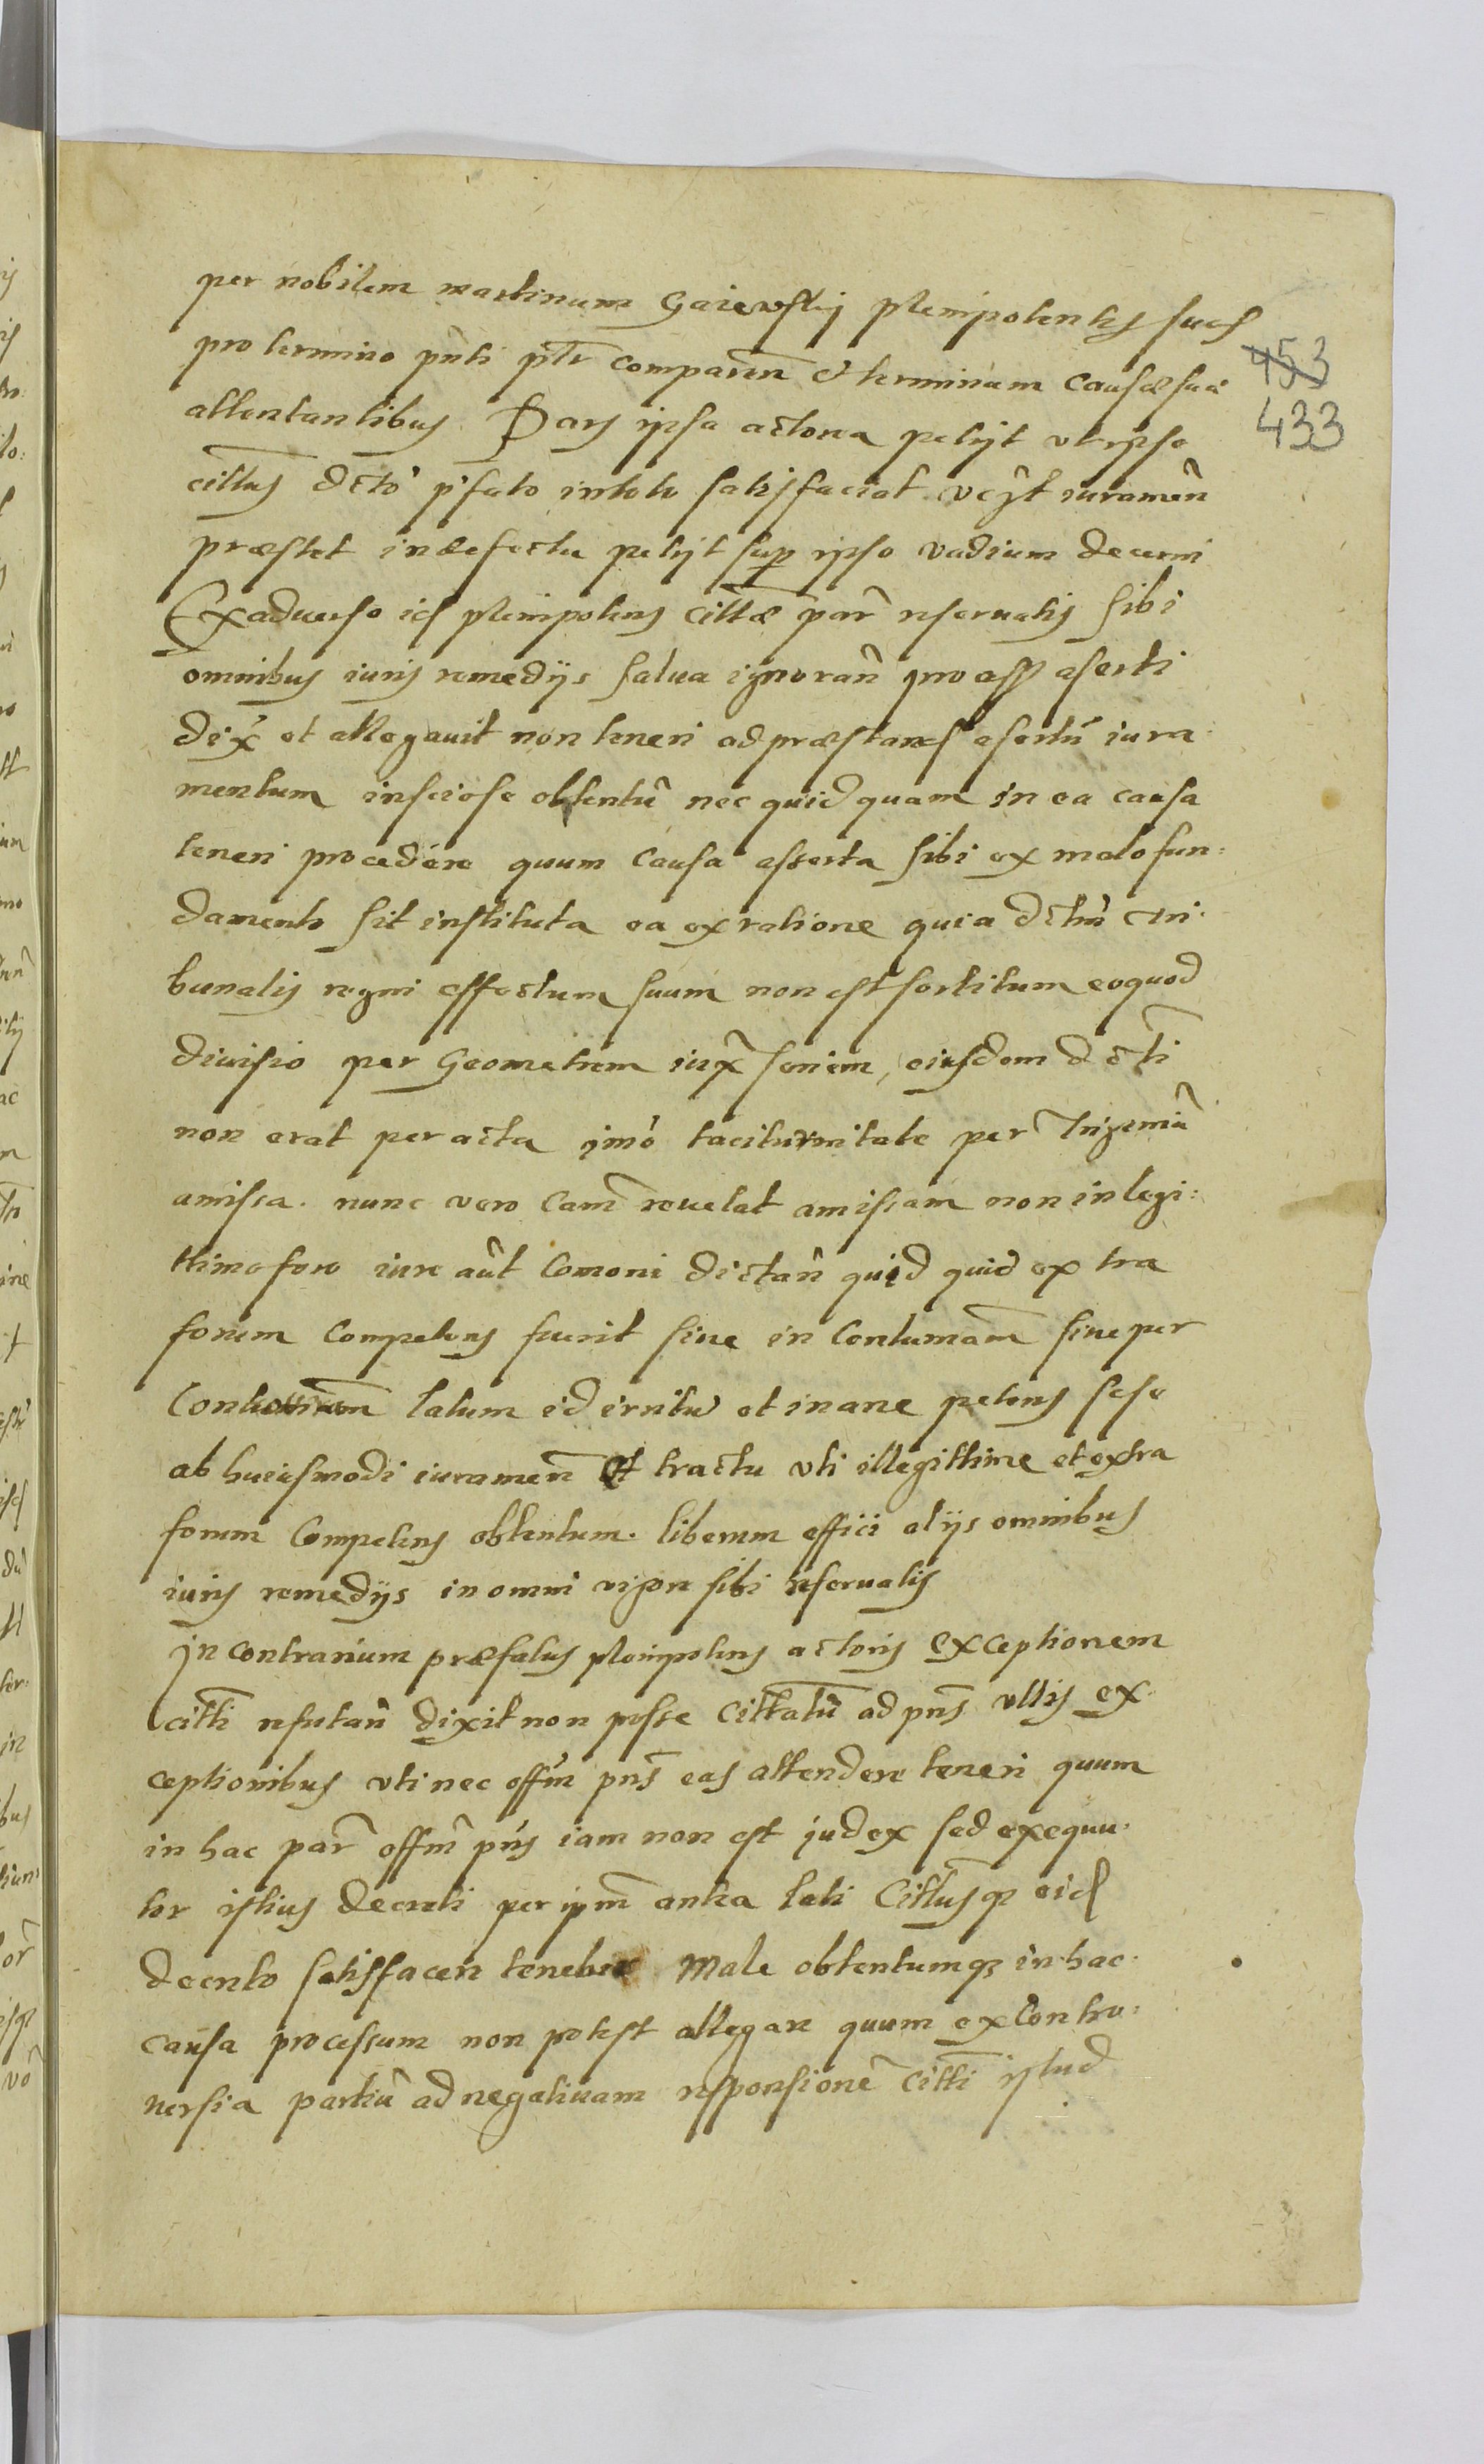 per nobilem martinum Gaiewskij plenipotentes suos
pro termino pnti ptr comparen et terminum causæ suæ
453
433
attentantibus. Pars ipsa actorea petijt ut ipse
cittus dcto pfato in toto satisfaciat. ucijt iuramen
præstet in defectu petijt sup ipso vadium decerni
Ex aduerso id plenipotens cittæ par reseruatis sibi
omnibus iuris remedijs salua ignoran pro assi aserti
dix et allegauit non teneri ad præstand asertu iura
mentum insciose obtentu nec quidquam in ea causa
teneri procedere quum causa asserta sibi ex malo fun:
damento sit instituta ea ex ratione quia dctm tri
bunalis regni effectum suum non est sortitum eoquod
diuisio per Geometrem iux seriem, eiusdem dcti
non erat peracta imo taciturnitate per trigemin
amissa. nunc vero Cam reuelat amissam non in legi:
ttimo foro iure aut Comoni dictan quid quid extra
forum Competens fuerit siue in Contumam siue per
latum id irritu et inane petens sese
ab huiusmodi iuramen et tractu uti illegittime et extra
forum Competens obtentum. liberum effici alijs omnibus
iuris remedijs in omni vigore sibi reseruatis
In contrarium præfatus plenipotens actoris exceptionem
citti refutan dixit non posse cittatu ad pns ullis ex
ceptionibus uti nec offm pns eas attendere teneri quum
in hac par offm pns iam non est judex sed exequu.
tor istius decreti per ipm antea lati Cittusq eid
decreto satisfacere tenebit Male obtentumq in hac
causa processum non potest allegare quum ex Contro:
uersia partiu ad negatiuam responsione citti istud